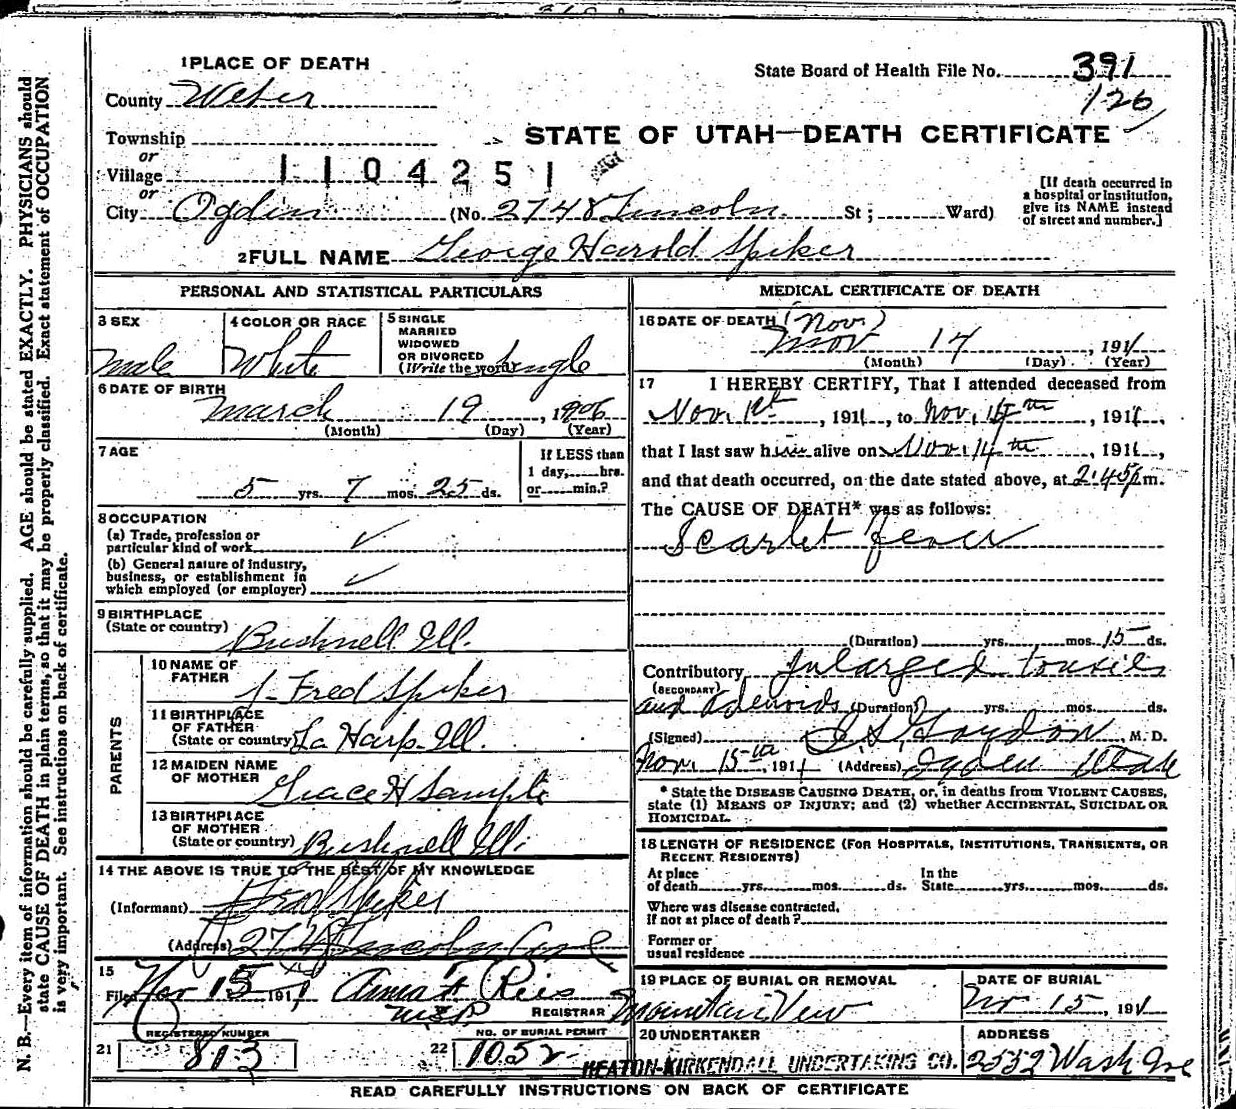 1 PLACE OF DEATH
State Board of Health File No. 391
126
County Weber
STATE OF UTAH—DEATH CERTIFICATE
Township
or
Village 1104251
or
City Ogden (No. 2748 Lincoln St; Ward)
[If death occurred in
a hospital or institution,
give its NAME instead
of street and number.]
2 FULL NAME George Harold Spiker
PERSONAL AND STATISTICAL PARTICULARS
3 SEX
Male
4 COLOR OR RACE
White
5 SINGLE
MARRIED
WIDOWED
OR DIVORCED
(Write the word) Single
6 DATE OF BIRTH
March 19, 1906
(Month) (Day) (Year)
7 AGE
5 yrs. 7 mos. 25 ds.
If LESS than
1 day, hrs.
or min.?
8 OCCUPATION
(a) Trade, profession or
particular kind of work ✓
(b) General nature of Industry,
business, or establishment in
which employed (or employer) ✓
9 BIRTHPLACE
(State or country) Bushnell Ill.
PARENTS
10 NAME OF
FATHER J. Fred Spiker
11 BIRTHPLACE
OF FATHER
(State or country) La Harp Ill.
12 MAIDEN NAME
OF MOTHER
Grace H Sample
13 BIRTHPLACE
OF MOTHER
(State or country) Bushnell Ill.
14 THE ABOVE IS TRUE TO THE BEST OF MY KNOWLEDGE
(Informant) Fred Spiker
(Address) 2748 Lincoln Ave
15
Filed Nov 15 1911 Anna F Reis
REGISTRAR
REGISTERED NUMBER
21 813
NO. OF BURIAL PERMIT
22 1052
MEDICAL CERTIFICATE OF DEATH
16 DATE OF DEATH (Nov)
Nov 14, 1911
(Month) (Day) (Year)
17 I HEREBY CERTIFY, That I attended deceased from
Nov. 1st, 1911, to Nov. 14th, 1911,
that I last saw him alive on Nov. 14th, 1911,
and that death occurred, on the date stated above, at 2:45 p m.
The CAUSE OF DEATH* was as follows:
Scarlet fever
(Duration) yrs. mos. 15 ds.
Contributory Inlarged tonsils
(SECONDARY)
and Adenoids (Duration) yrs. mos. ds.
(Signed) Gordon, M. D.
Nov. 15th, 1911 (Address) Ogden Utah
* State the DISEASE CAUSING DEATH, or, in deaths from VIOLENT CAUSES,
state (1) MEANS OF INJURY; and (2) whether ACCIDENTAL, SUICIDAL OR
HOMICIDAL.
18 LENGTH OF RESIDENCE (FOR HOSPITALS, INSTITUTIONS, TRANSIENTS, OR
RECENT RESIDENTS)
At place
of death yrs. mos. ds.
In the
State yrs. mos. ds.
Where was disease contracted,
If not at place of death?
Former or
usual residence
19 PLACE OF BURIAL OR REMOVAL
Mountain View
DATE OF BURIAL
Nov 15, 1911
20 UNDERTAKER
HEATON-KIRKENDALL UNDERTAKING CO.
ADDRESS
2532 Wash Ave
READ CAREFULLY INSTRUCTIONS ON BACK OF CERTIFICATE
N. B.—Every item of information should be carefully supplied. AGE should be stated EXACTLY. PHYSICIANS should
state CAUSE OF DEATH in plain terms, so that it may be properly classified. Exact statement of OCCUPATION
is very important. See instructions on back of certificate.